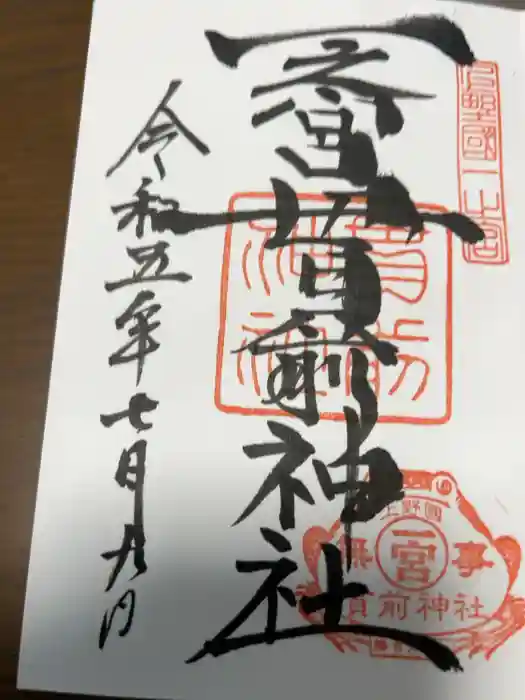 上野國一之宮
一之宮貫前神社
貫前神社
令和五年七月九日
上野國
一宮
無事
貫前神社